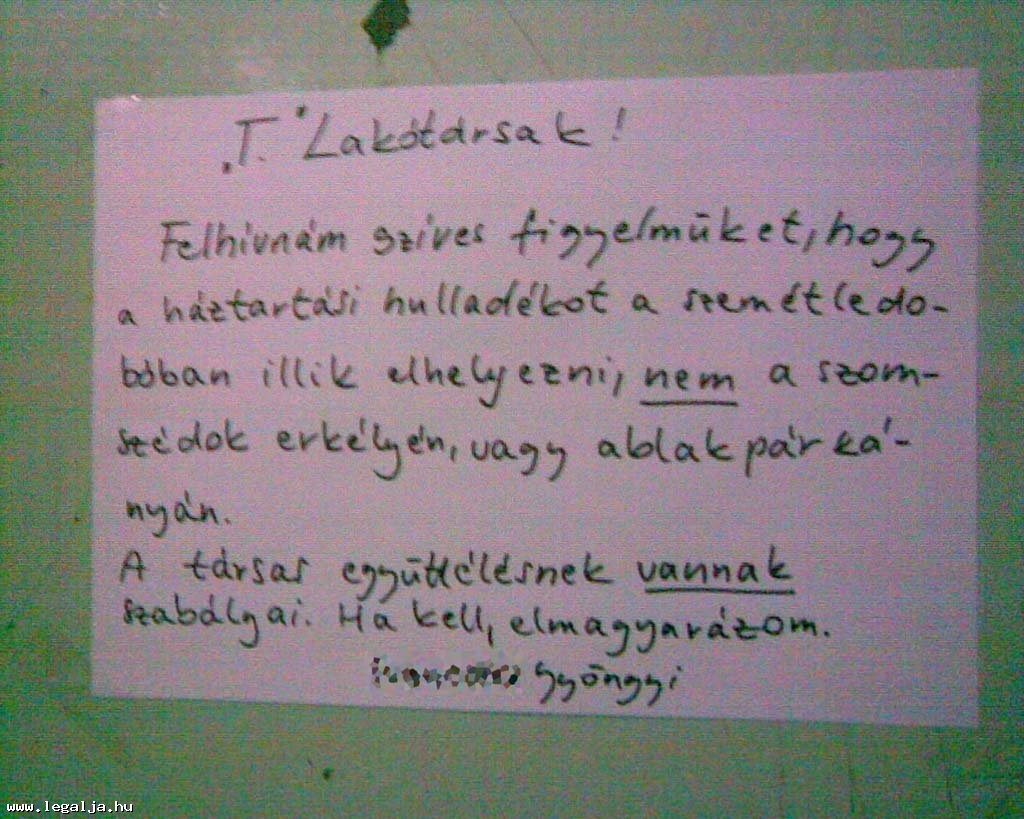 T. Lakótársak!
Felhívnám szíves figyelmüket, hogy
a háztartási hulladékot a szemétledo-
bóban illik elhelyezni, nem a szom-
szédok erkélyén, vagy ablakpárká-
nyán.
A társas együttélésnek vannak
szabályai. Ha kell, elmagyarázom.
Gyöngyi
www.legalja.hu